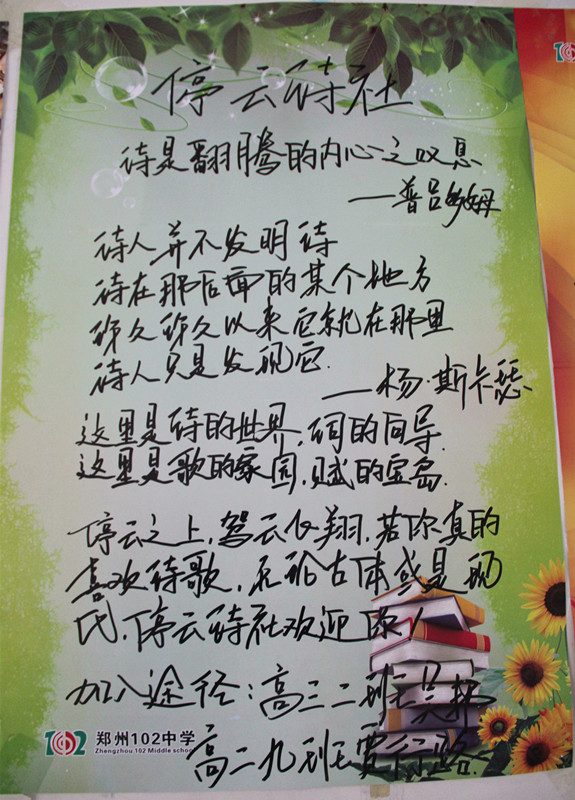 停云诗社
诗是翻腾的内心之叹息
——普吕多姆
诗人并不发明诗
诗在那后面的某个地方
很久很久以来它就在那里
诗人只是发现它.
——杨·斯卡瑟
这里是诗的世界,词的向导.
这里是歌的家园,赋的宝岛.
停云之上,驾云仪翔,若你真的
喜欢诗歌,无论古体或是现
代,停云诗社欢迎你!
加入途径:高三二班 吴
高二九班 贾行路
102 郑州102中学
Zhengzhou 102 Middle school
102